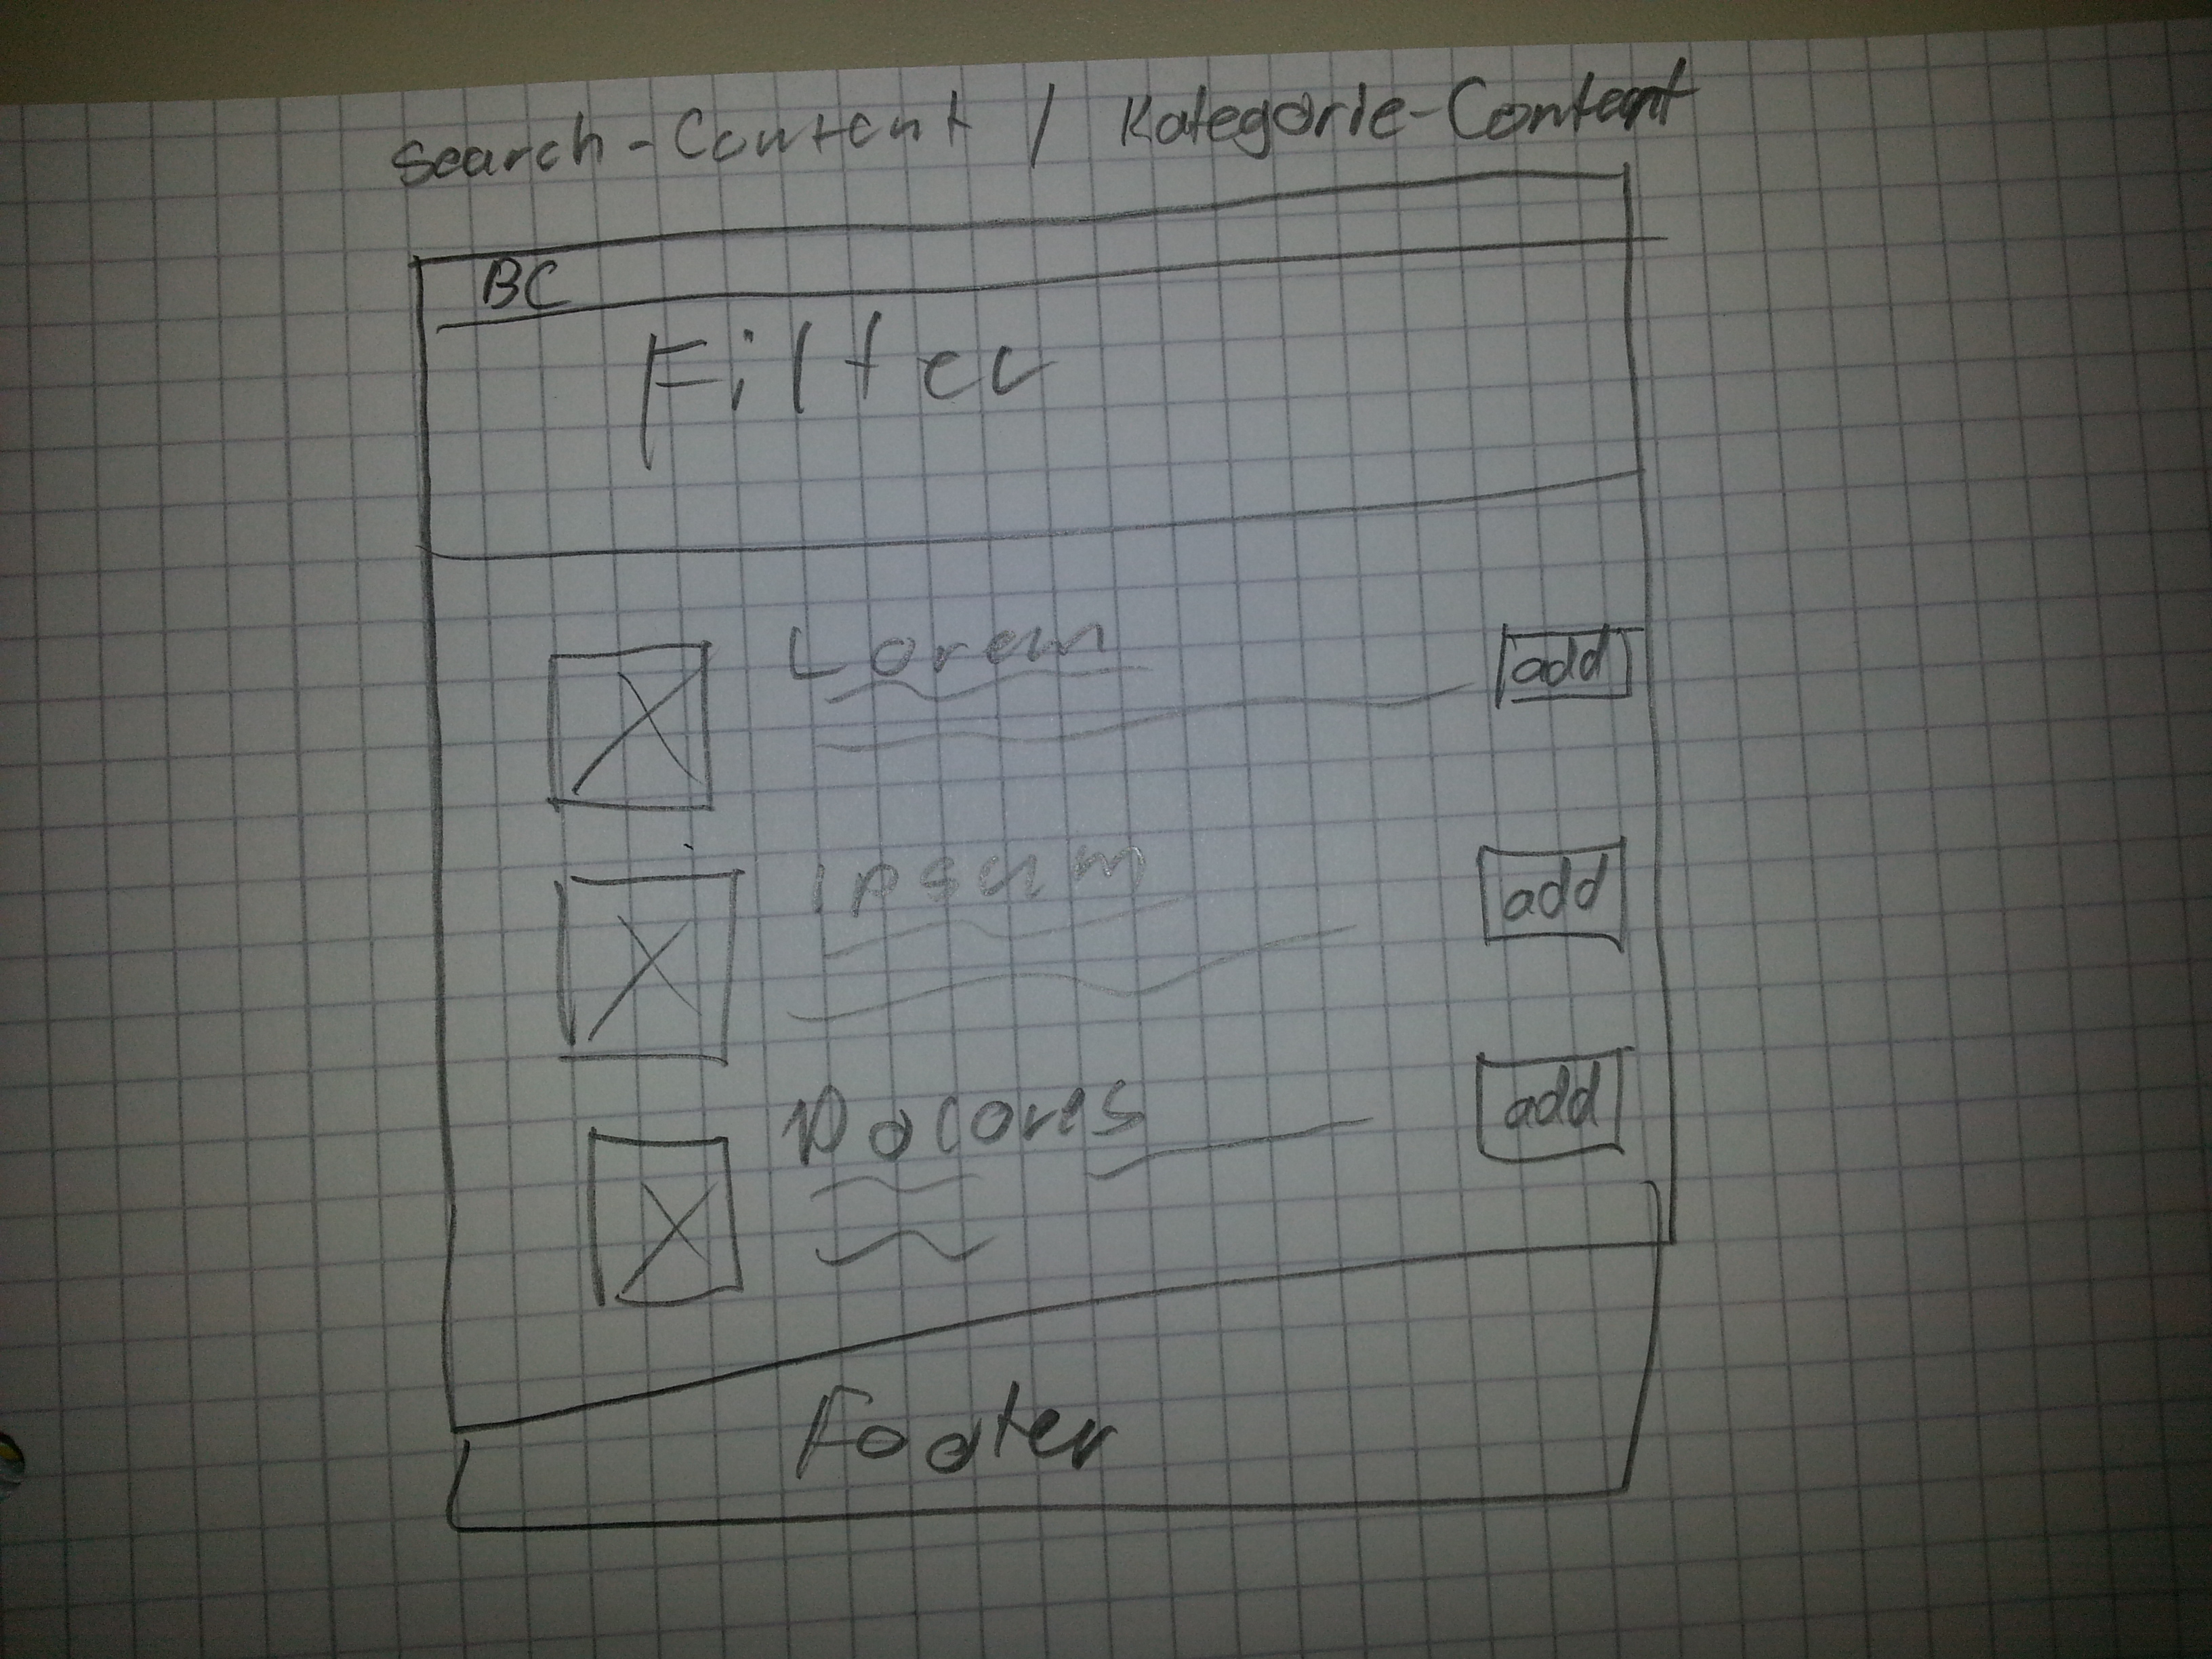 Search-Content / Kategorie-Content
BC
Filter
Lorem
add
Ipsum
add
Dolores
add
Footer